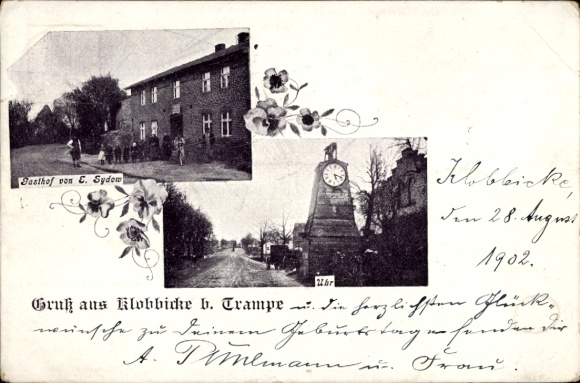 Gasthof von E. Sydow
Uhr
Klobbicke,
den 28. August
1902.
Gruß aus Klobbicke b. Trampe u. die herzlichsten Glück-
wünsche zu Deinem Geburtstage senden Dir
A. u. Frau.